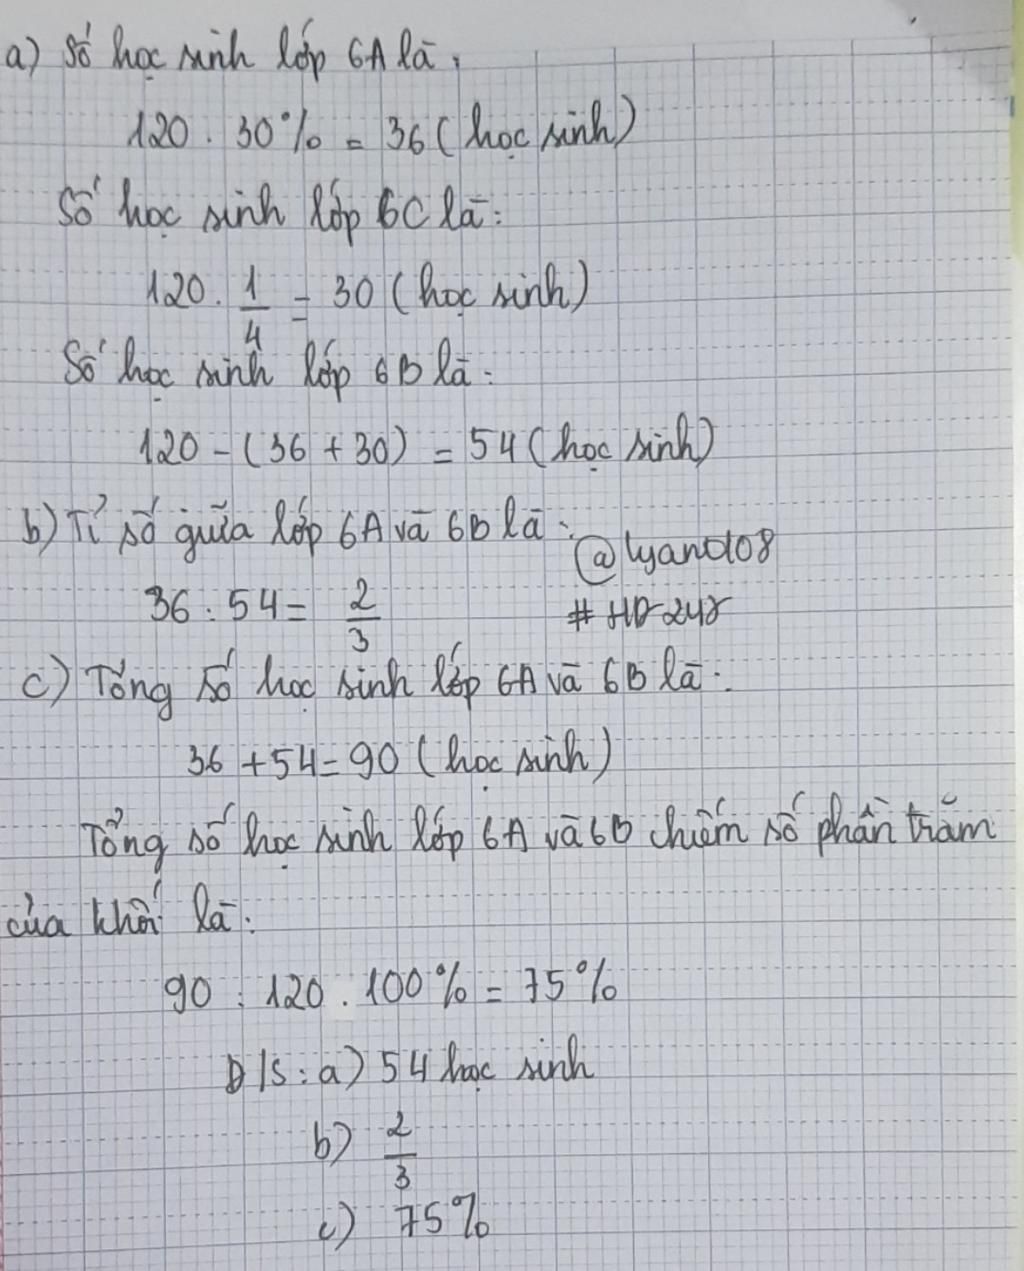 a) Số học sinh lớp 6A là:
120 . 30% = 36 (học sinh)
Số học sinh lớp 6C là:
120 . 1/4 = 30 (học sinh)
Số học sinh lớp 6B là:
120 - (36 + 30) = 54 (học sinh)
b) Tỉ số giữa lớp 6A và 6B là:
@lyand108
36 : 54 = 2/3
c) Tổng số học sinh lớp 6A và 6B là:
36 + 54 = 90 (học sinh)
Tổng số học sinh lớp 6A và 6B chiếm số phần trăm
của khối là:
90 : 120 . 100% = 75%
Đ/S: a) 54 học sinh
b) 2/3
c) 75%